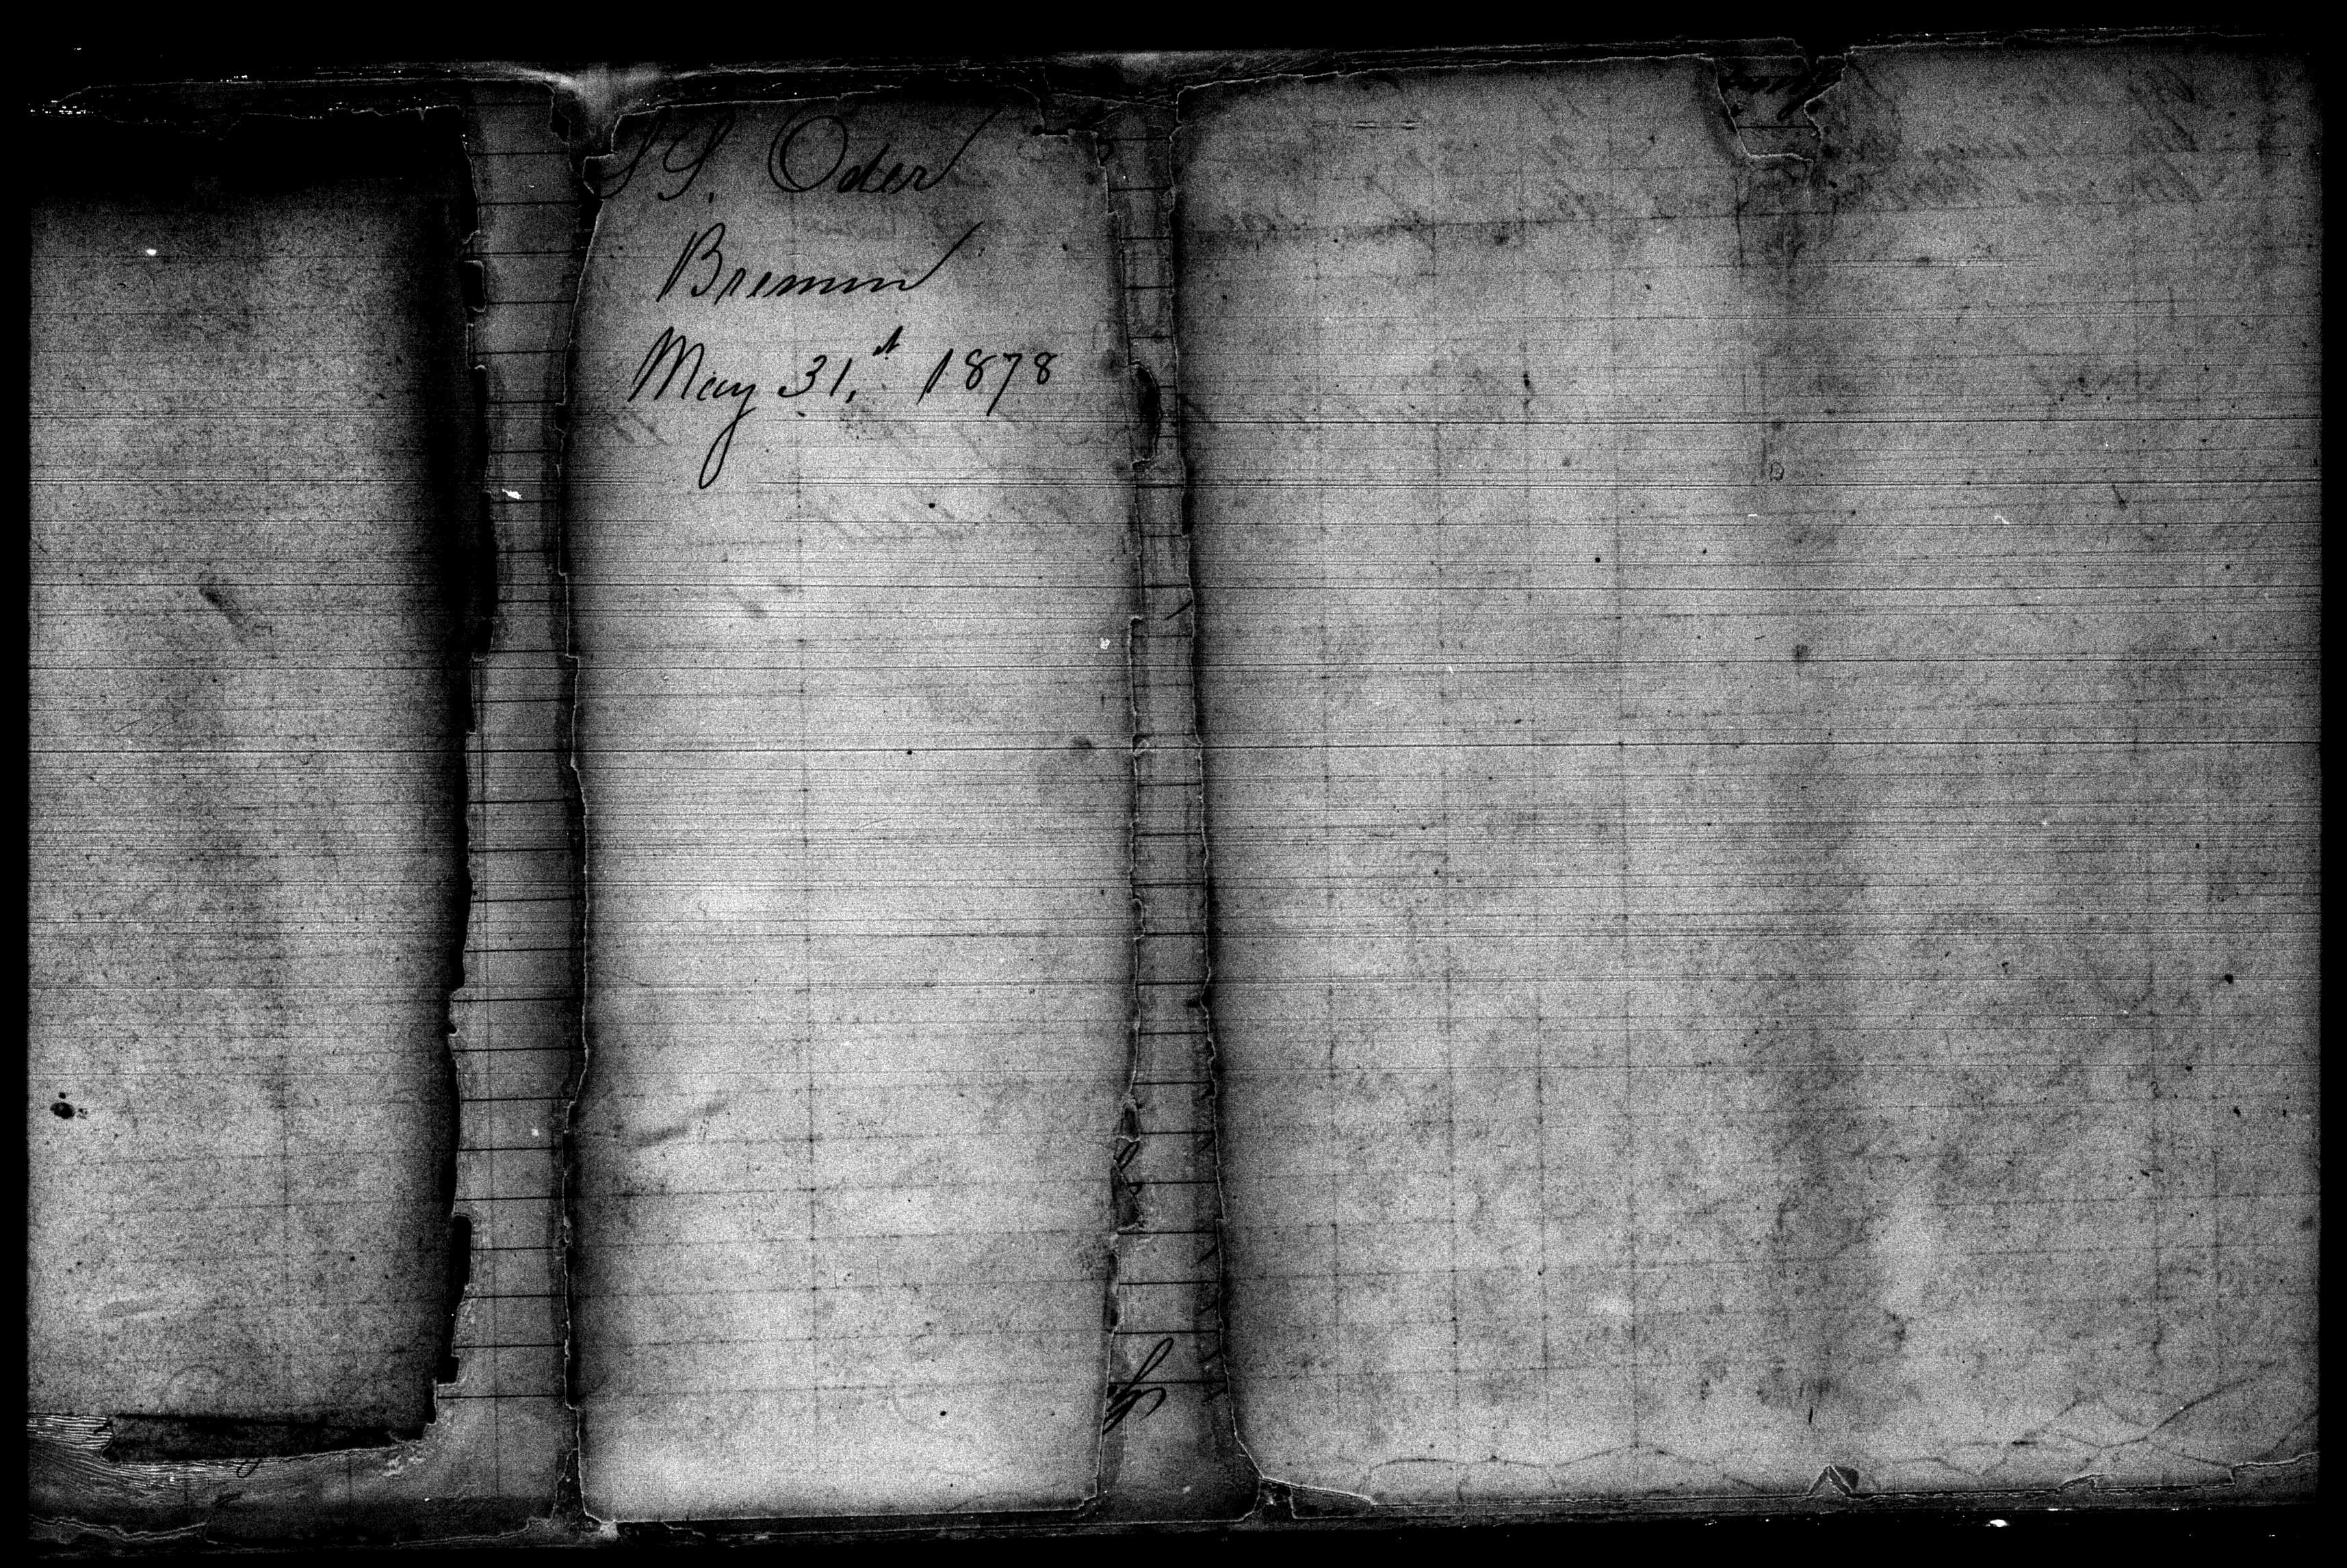 SS. Oder
Bremen
May 31,st 1878